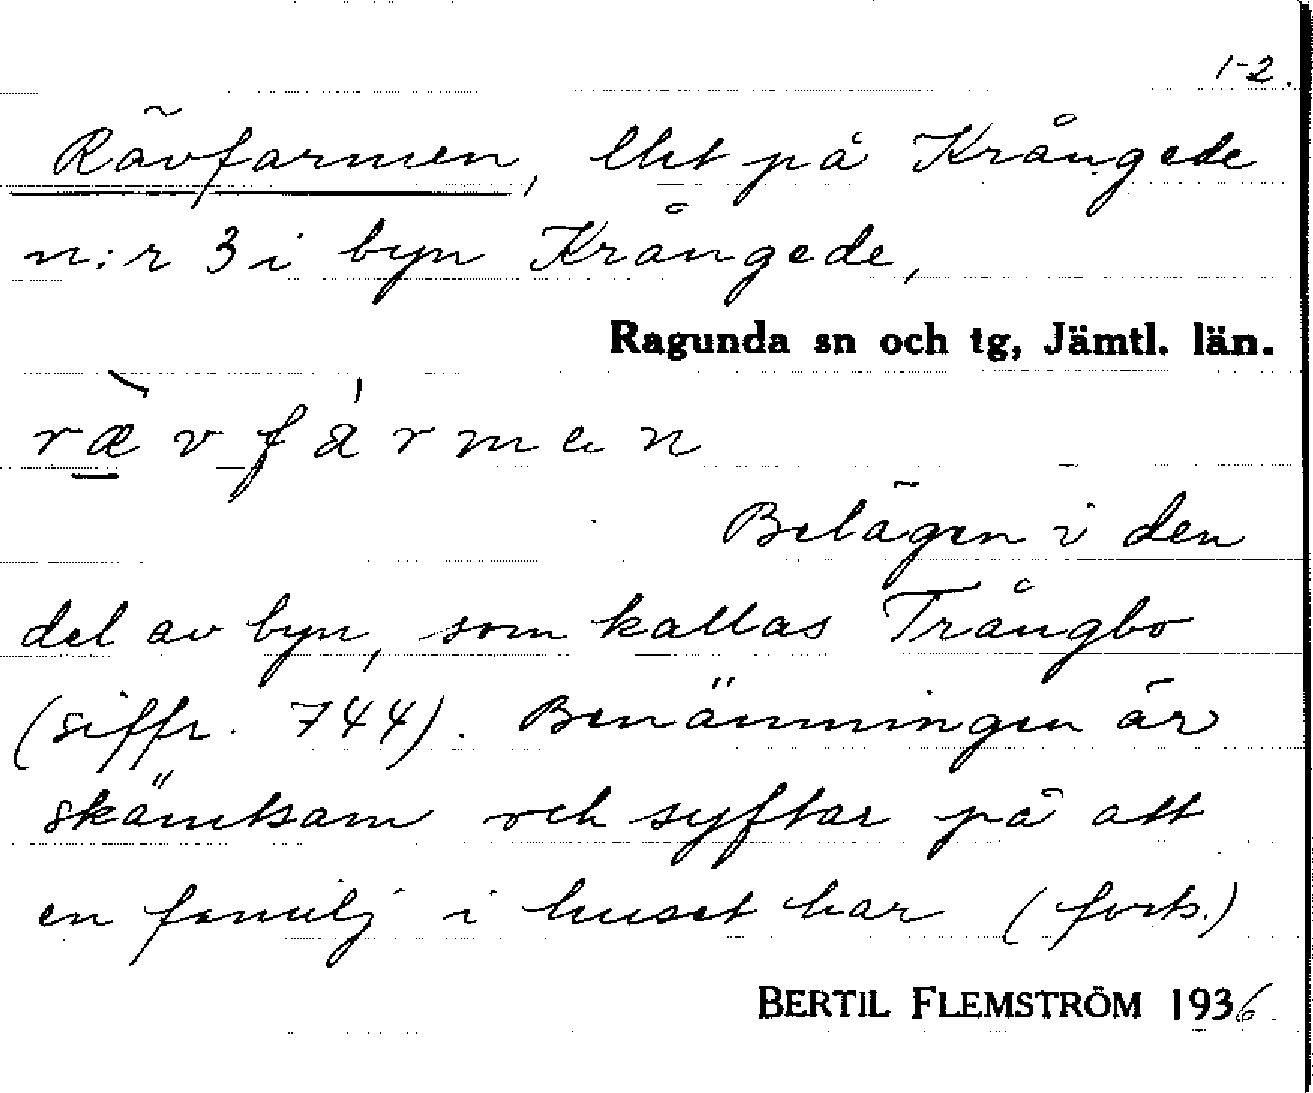 1-2.
Rävfarmen, lht på Krångede
n:r 3 i byn Krångede,
Ragunda sn och tg, Jämtl. län.
ræ̀vfármen
Belägen i den
del av byn, som kallas Trångbo
(siffr. 744). Benämningen är
skämtsam och syftar på att
en familj i huset har (forts.)
BERTIL FLEMSTRÖM 1936